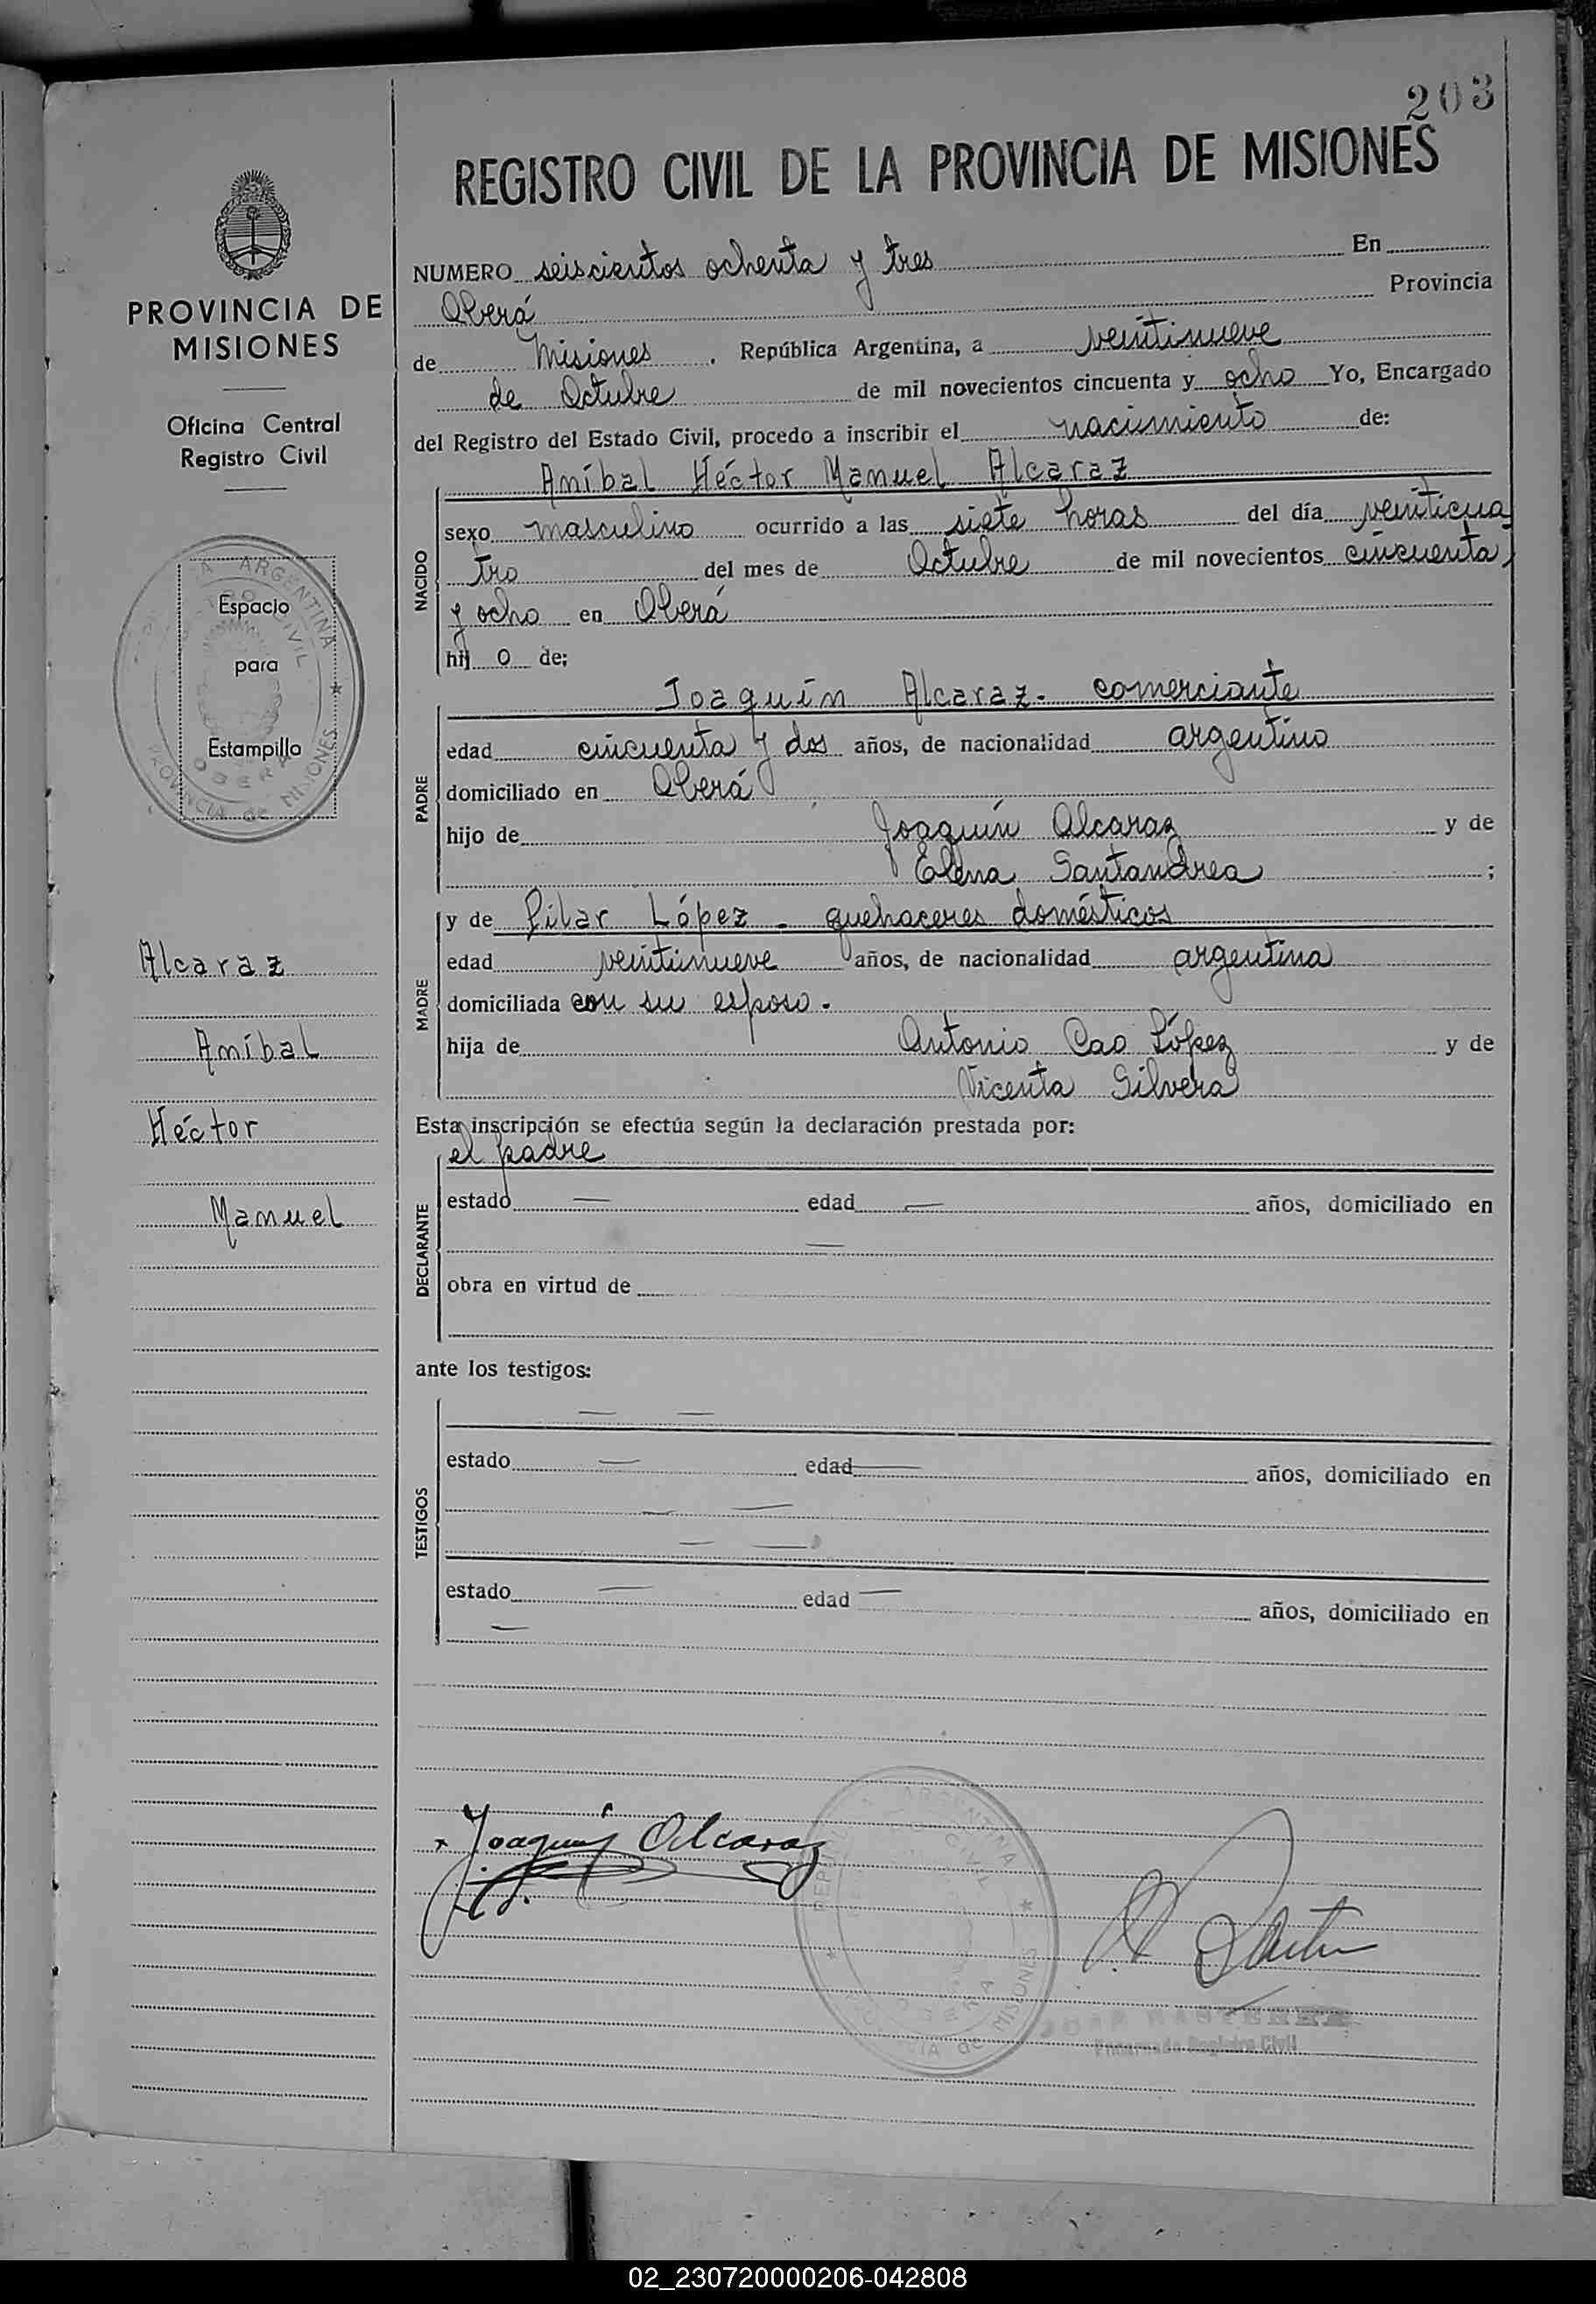 203
REGISTRO CIVIL DE LA PROVINCIA DE MISIONES
PROVINCIA DE
MISIONES
Oficina Central
Registro Civil
Espacio
para
Estampilla
Alcaraz
Aníbal
Héctor
Manuel
NUMERO seiscientos ochenta y tres En
Oberá Provincia
de Misiones . República Argentina, a veintinueve
de Octubre de mil novecientos cincuenta y ocho Yo, Encargado
del Registro del Estado Civil, procedo a inscribir el nacimiento de:
NACIDO
Aníbal Héctor Manuel Alcaraz
sexo masculino ocurrido a las siete horas del día veinticua
tro del mes de Octubre de mil novecientos cincuenta
y ocho en Oberá
hij o de:
PADRE
Joaquín Alcaraz - comerciante
edad cincuenta y dos años, de nacionalidad argentino
domiciliado en Oberá
hijo de Joaquín Alcaraz y de
Elena Santandrea ;
MADRE
y de Pilar López - quehaceres domésticos
edad veintinueve años, de nacionalidad argentina
domiciliada con su esposo.
hija de Antonio Cao López y de
Vicenta Silvera
Esta inscripción se efectúa según la declaración prestada por:
DECLARANTE
el padre
estado — edad — años, domiciliado en
—
obra en virtud de
ante los testigos:
TESTIGOS
— —
estado — edad — años, domiciliado en
— —
— —
estado — edad — años, domiciliado en
—
Joaquín Alcaraz
REPUBLICA ARGENTINA
CIVIL
OBERA
PROVINCIA de MISIONES
Encargado Registro Civil
02_230720000206-042808